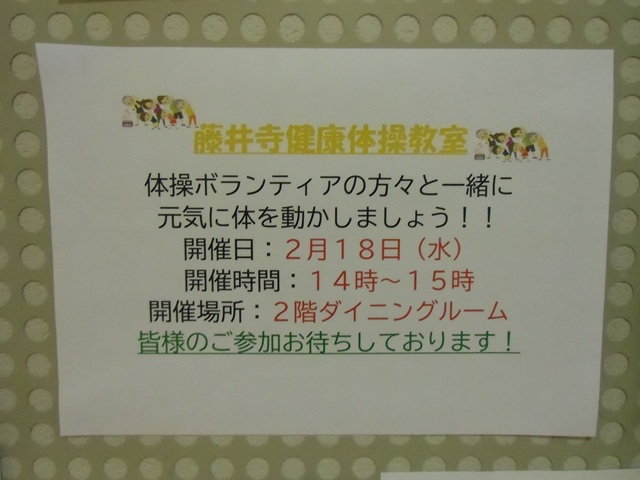 藤井寺健康体操教室
体操ボランティアの方々と一緒に
元気に体を動かしましょう！！
開催日：２月１８日（水）
開催時間：１４時～１５時
開催場所：２階ダイニングルーム
皆様のご参加お待ちしております！